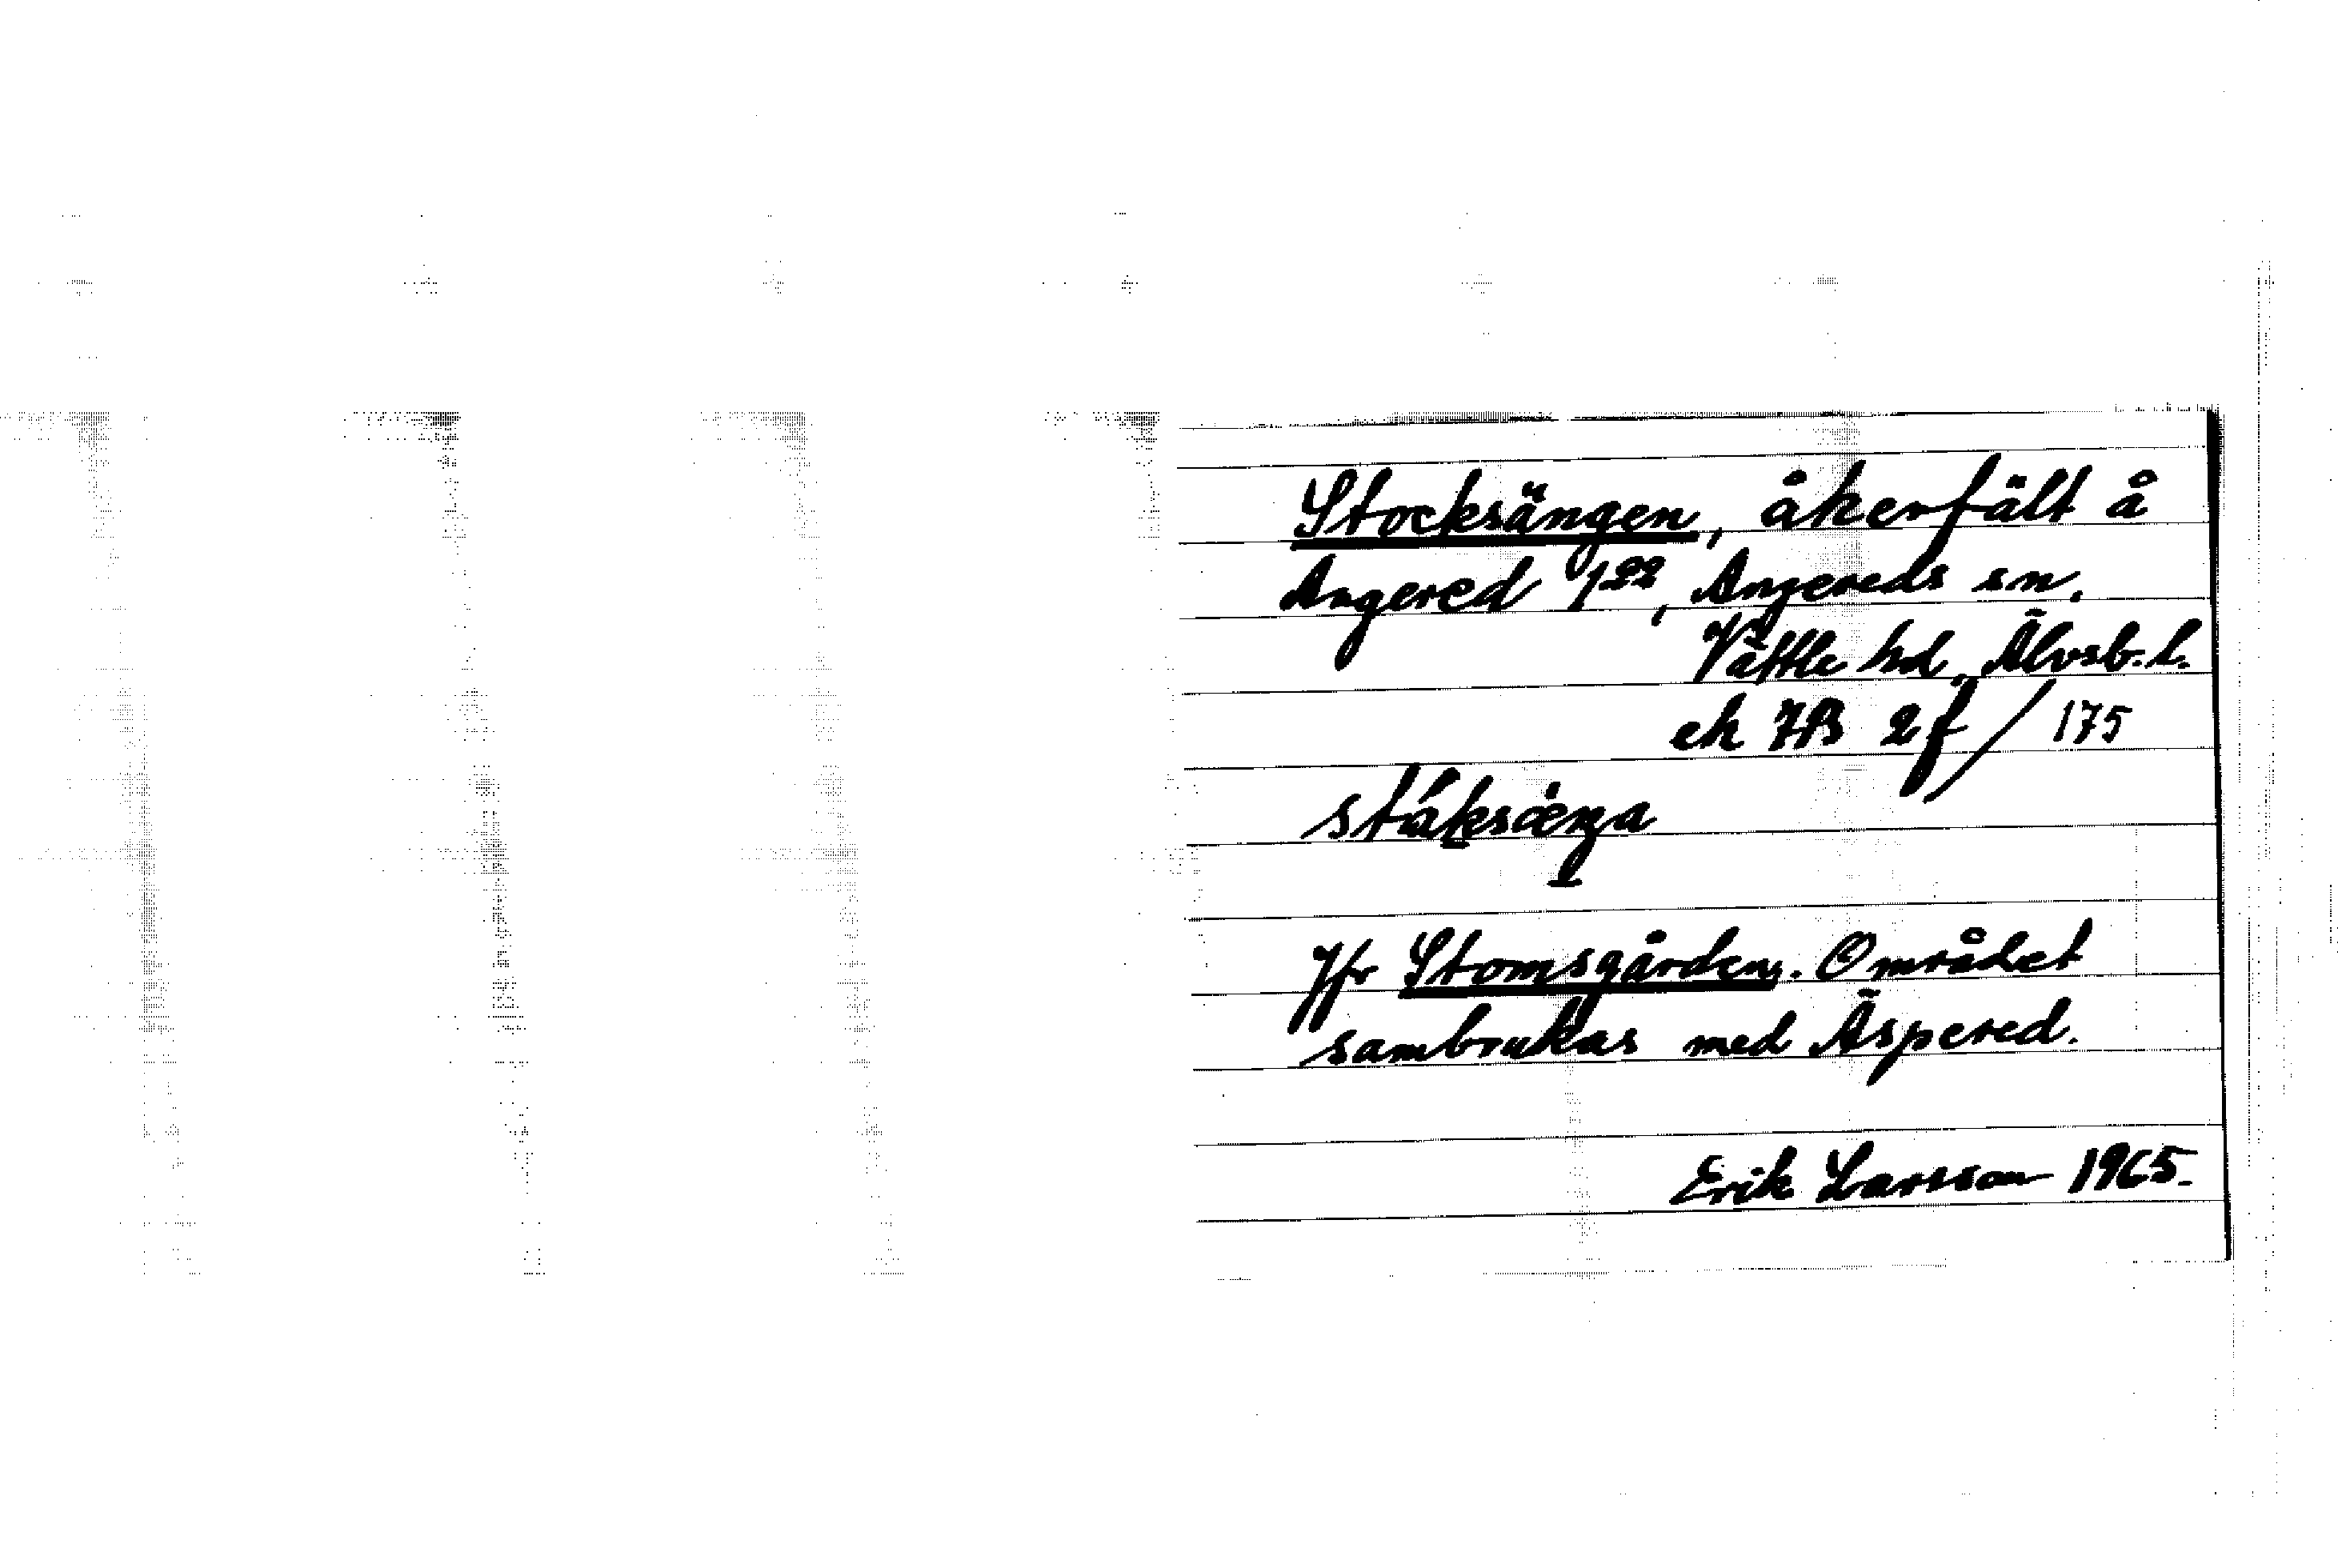 Stocksängen, åkerfält å
Angered 1²², Angereds sn,
Vättle hd, Älvsb. l.
ek 7B 2f / 175
Jfr Stomsgården. Området
sambrukas med Äspered.
Erik Larsson 1965.